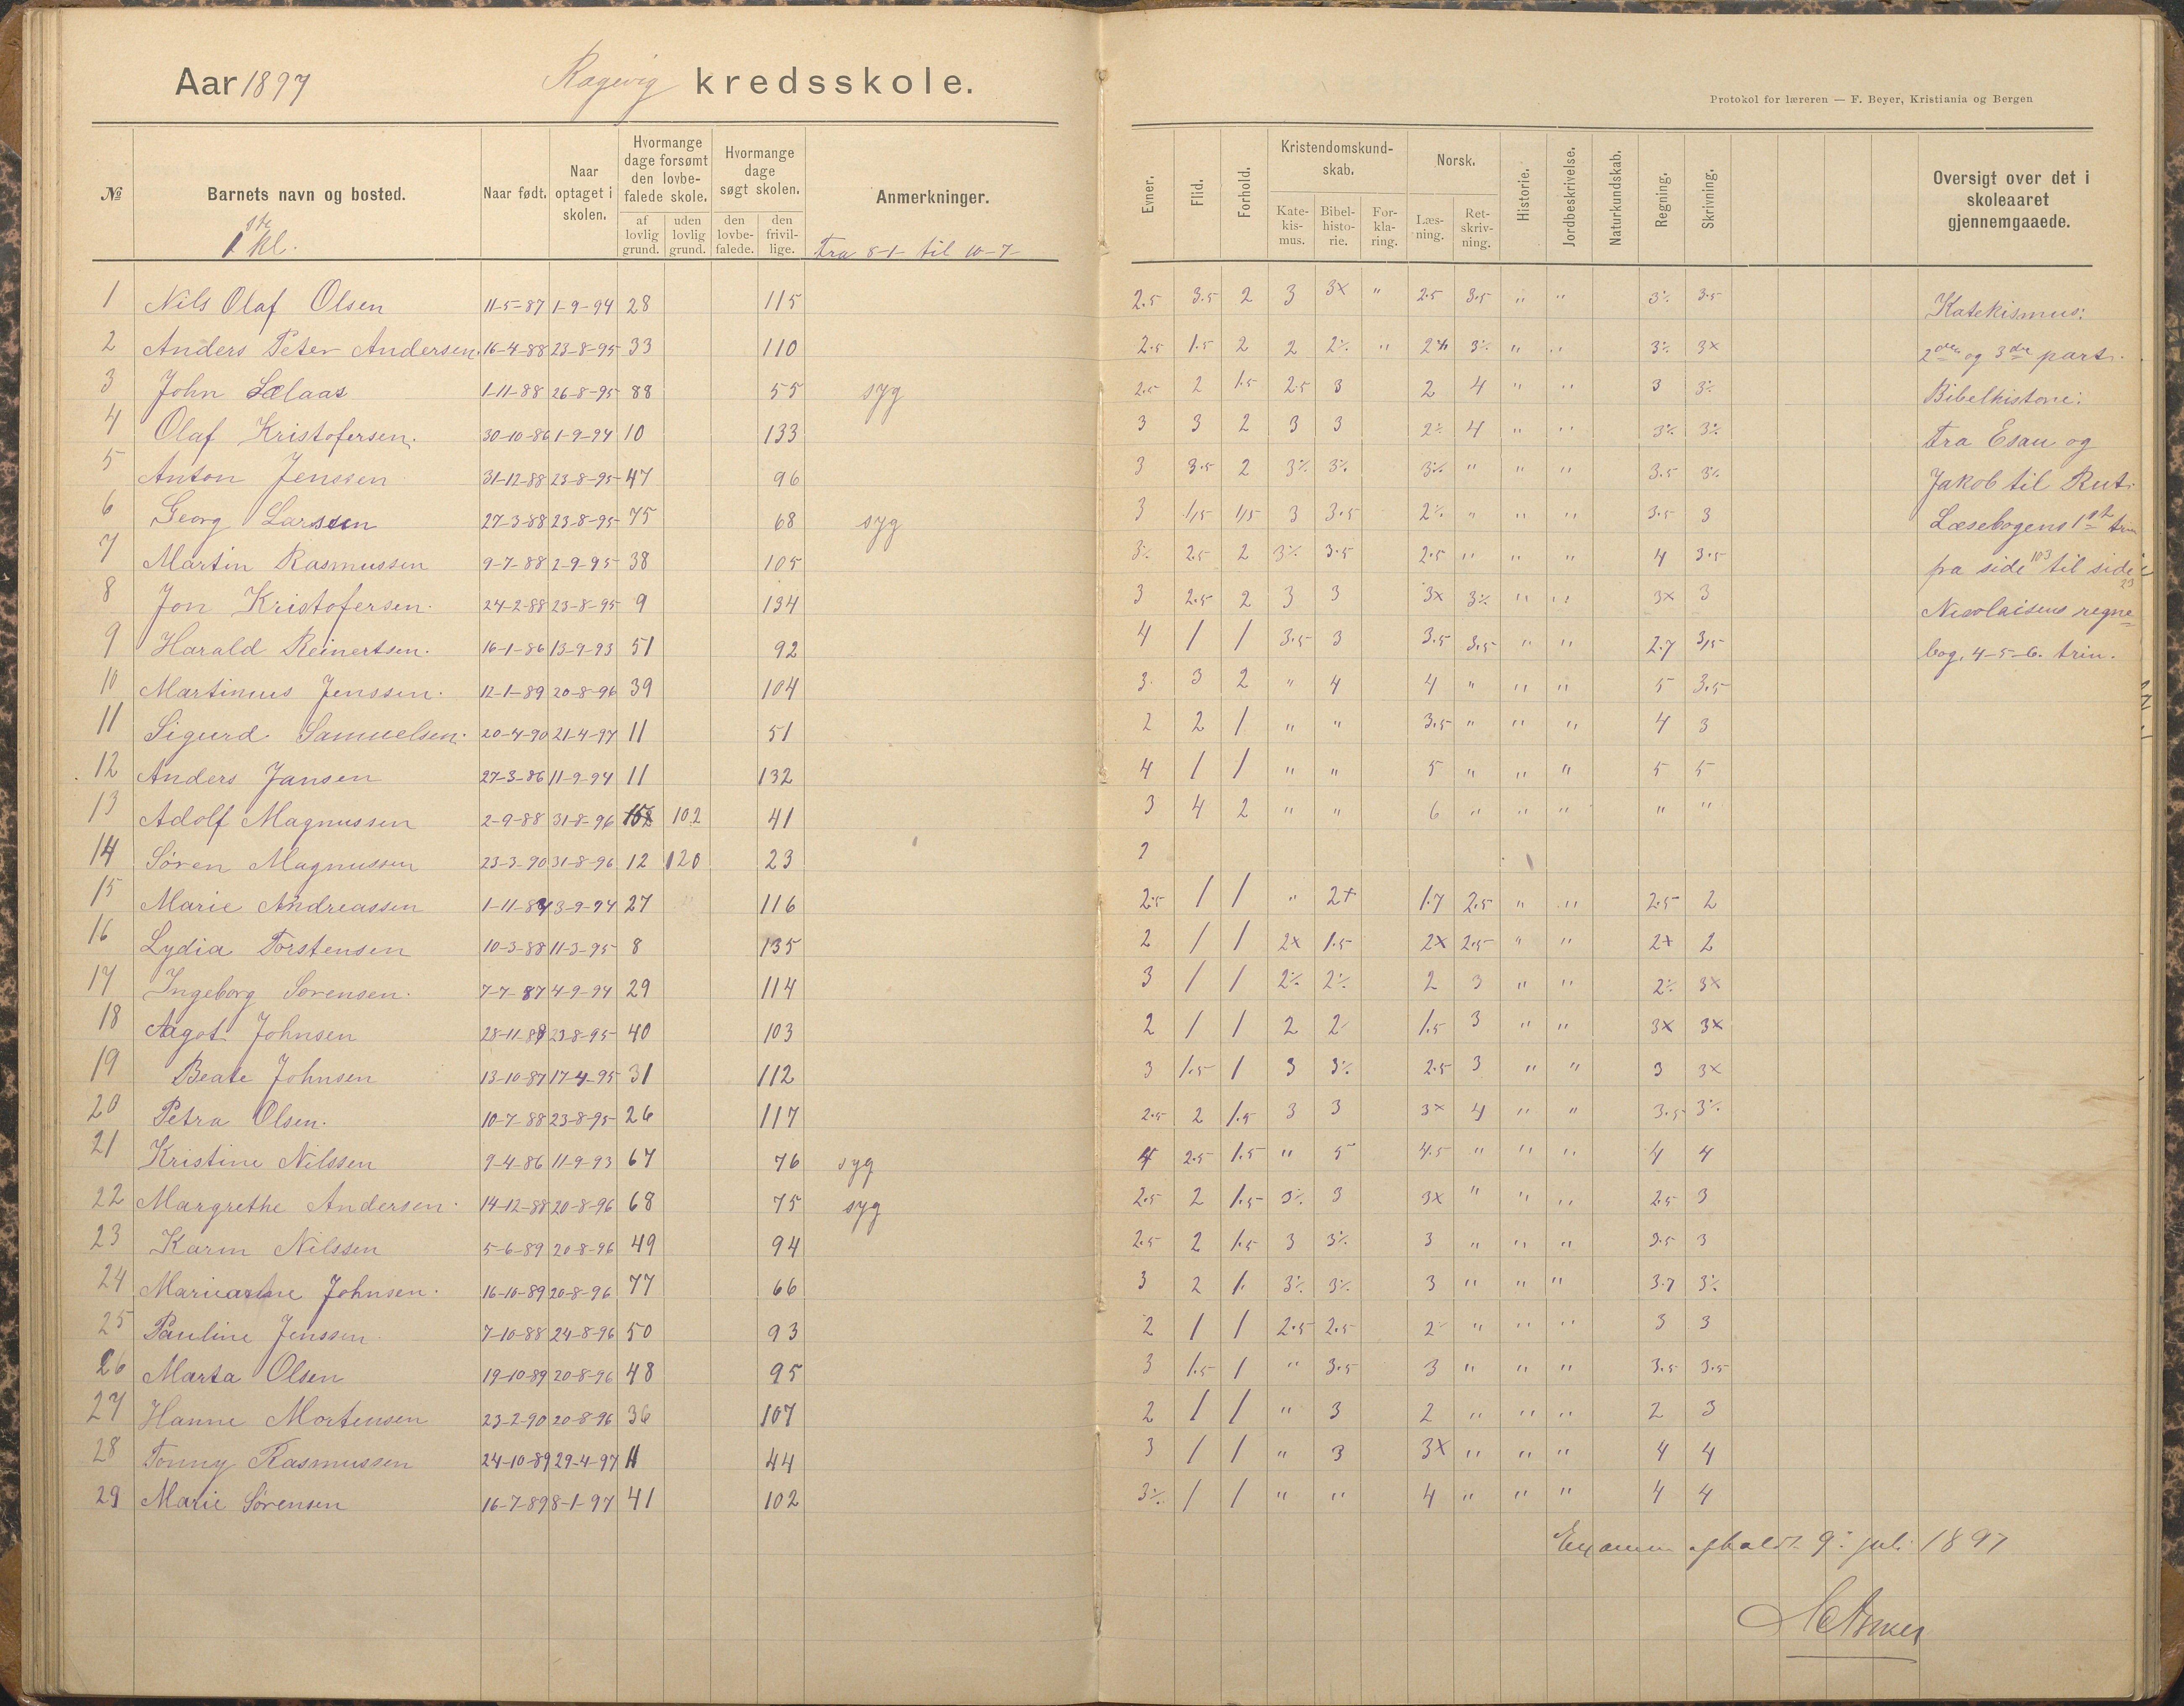 Aar 1897 Ragevig kredsskole.
Protokol for læreren — F. Beyer, Kristiania og Bergen
№ Barnets navn og bosted. Naar født. Naar optaget i skolen. Hvormange dage forsømt den lovbefalede skole. af lovlig grund. uden lovlig grund. Hvormange dage søgt skolen. den lovbefalede. den frivillige. Anmerkninger. Evner. Flid. Forhold. Kristendomskundskab. Katekismus. Bibelhistorie. Forklaring. Norsk. Læsning. Retskrivning. Historie. Jordbeskrivelse. Naturkundskab. Regning. Skrivning. Oversigt over det i skoleaaret gjennemgaaede.
1ste kl. fra 8-1- til 10-7-
1 Nils Olaf Olsen 11-5-87 1-9-94 28 115 2.5 3.5 2 3 3× " 2.5 3.5 " " 3% 3.5 Katekismus:
2 Anders Peter Andersen. 16-4-88 23-8-95 33 110 2.5 1.5 2 2 2% " 2% 3% " " 3% 3× 2den og 3die part.
3 John Lælaas 1-11-88 26-8-95 88 55 syg 2.5 2 1.5 2.5 3 2 4 " " 3 3% Bibelhistorie:
4 Olaf Kristofersen. 30-10-86 1-9-94 10 133 3 3 2 3 3 2% 4 " " 3% 3% fra Esau og
5 Anton Jenssen 31-12-88 23-8-95 47 96 3 3.5 2 3% 3% 3% " " " 3.5 3% Jakob til Rut.
6 Georg Larssen 27-3-88 23-8-95 75 68 syg 3 1,15 1,5 3 3.5 2% " " " 3.5 3 Læsebogens 1st trin
7 Martin Rasmussen 9-7-88 2-9-95 38 105 3% 2.5 2 3% 3.5 2.5 " " " 4 3.5 fra side 103 til side
8 Jon Kristofersen. 24-2-88 23-8-95 9 134 3 2.5 2 3 3 3× 3% " " 3× 3 Nicolaisens regne=
9 Harald Reinertsen. 16-1-86 13-9-93 51 92 4 1 1 3.5 3 3.5 3.5 " " 2.7 3,5 bog, 4-5-6. trin.
10 Martinius Jenssen. 12-1-89 20-8-96 39 104 3 3 2 " 4 4 " " " 5 3.5
11 Sigurd Samuelsen. 20-4-90 21-4-97 11 51 2 2 1 " " 3.5 " " " 4 3
12 Anders Jansen 27-3-86 11-9-94 11 132 4 1 1 " " 5 " " " 5 5
13 Adolf Magnussen 2-9-88 31-8-96 102 41 3 4 2 " " 6 " " " " "
14 Søren Magnussen 23-3-90 31-8-96 12 120 23 2
15 Marie Andreassen 1-11-84 3-9-94 27 116 2.5 1 1 " 2+ 1.7 2.5 " " 2.5 2
16 Lydia Torstensen 10-3-88 11-3-95 8 135 2 1 1 2× 1.5 2× 2.5 " " 2+ 2
17 Ingeborg Sørensen. 7-7-87 4-9-94 29 114 3 1 1 2% 2% 2 3 " " 2% 3×
18 Aagot Johnsen 28-11-88 23-8-95 40 103 2 1 1 2 2 1.5 3 " " 3× 3×
19 Beate Johnsen 13-10-87 17-4-95 31 112 3 1.5 1 3 3% 2.5 3 " " 3 3×
20 Petra Olsen. 10-7-88 23-8-95 26 117 2.5 2 1.5 3 3 3× 4 " " 3.5 3%
21 Kristine Nilssen 9-4-86 11-9-93 67 76 syg 4 2.5 1.5 " 5 4.5 " " " 4 4
22 Margrethe Andersen. 14-12-88 20-8-96 68 75 syg 2.5 2 1.5 3% 3 3× " " " 2.5 3
23 Karin Nilssen 5-6-89 20-8-96 49 94 2.5 2 1.5 3 3% 3 " " " 3.5 3
24 Johnsen. 16-10-89 20-8-96 77 66 3 2 1. 3% 3% 3 " " " 3.7 3%
25 Pauline Jenssen. 7-10-88 24-8-96 50 93 2 1 1 2.5 2.5 2 " " " 3 3
26 Marta Olsen 19-10-89 20-8-96 48 95 3 1.5 1 " 3.5 3 " " " 3.5 3.5
27 Hanne Mortensen 23-2-90 20-8-96 36 107 2 1 1 " 3 2 " " " 2 3
28 Tonny Rasmussen 24-10-89 29-4-97 11 44 3 1 1 " 3 3× " " " 4 4
29 Marie Sørensen 16-7-89 8-1-97 41 102 3% 1 1 " " 4 " " " 4 4
Examen afholdt 9: juli 1897